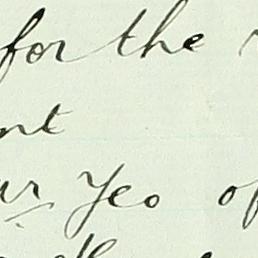 for the
nt
ur Yeo of